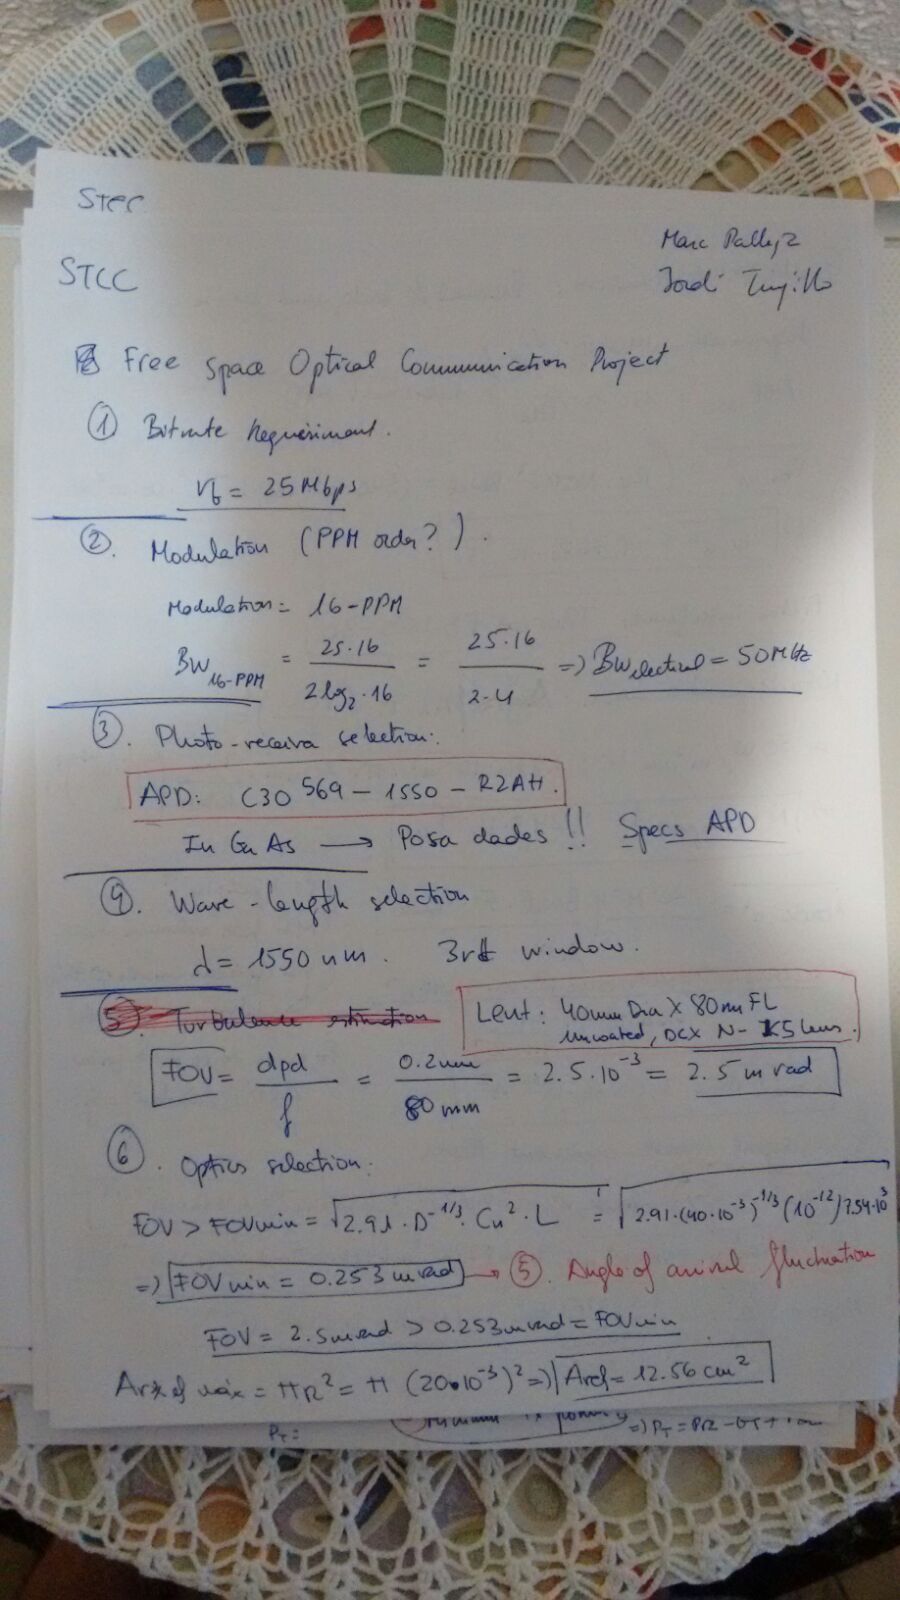 STCC
Marc Pallejà
STCC
Jordi Trujillo
Free Space Optical Communication Project
① Bitrate Requeriment.
Vb = 25 Mbps
②. Modulation (PPM order?).
Modulation = 16-PPM
BW16-PPM = 25·16 / 2log2·16 = 25·16 / 2·4 => BWelectrical = 50MHz
③. Photo-receiva selection:
APD: C30569-1550-R2AH.
InGaAs → Posa dades!! Specs APD
④. Wave-length selection
λ = 1550 nm. 3rd window.
⑤. Turbulence estimation
Lent: 40mm Dia X 80mm FL
uncoated, DCX N-K5 lens.
FOV = dpd / f = 0.2mm / 80mm = 2.5·10⁻³ = 2.5 m rad
⑥. Optics selection:
FOV > FOVmin = √2.91·D^-1/3·Cn²·L = √2.91·(40·10⁻³)^-1/3 (10⁻¹²) 7.54·10³
=> FOVmin = 0.253 mrad → ⑤. Angle of arrival fluctuation
FOV = 2.5mrad > 0.253mrad = FOVmin
= πR² = π (20·10⁻³)² => Aref = 12.56 cm²
PT =
=> PT = PR - GT +